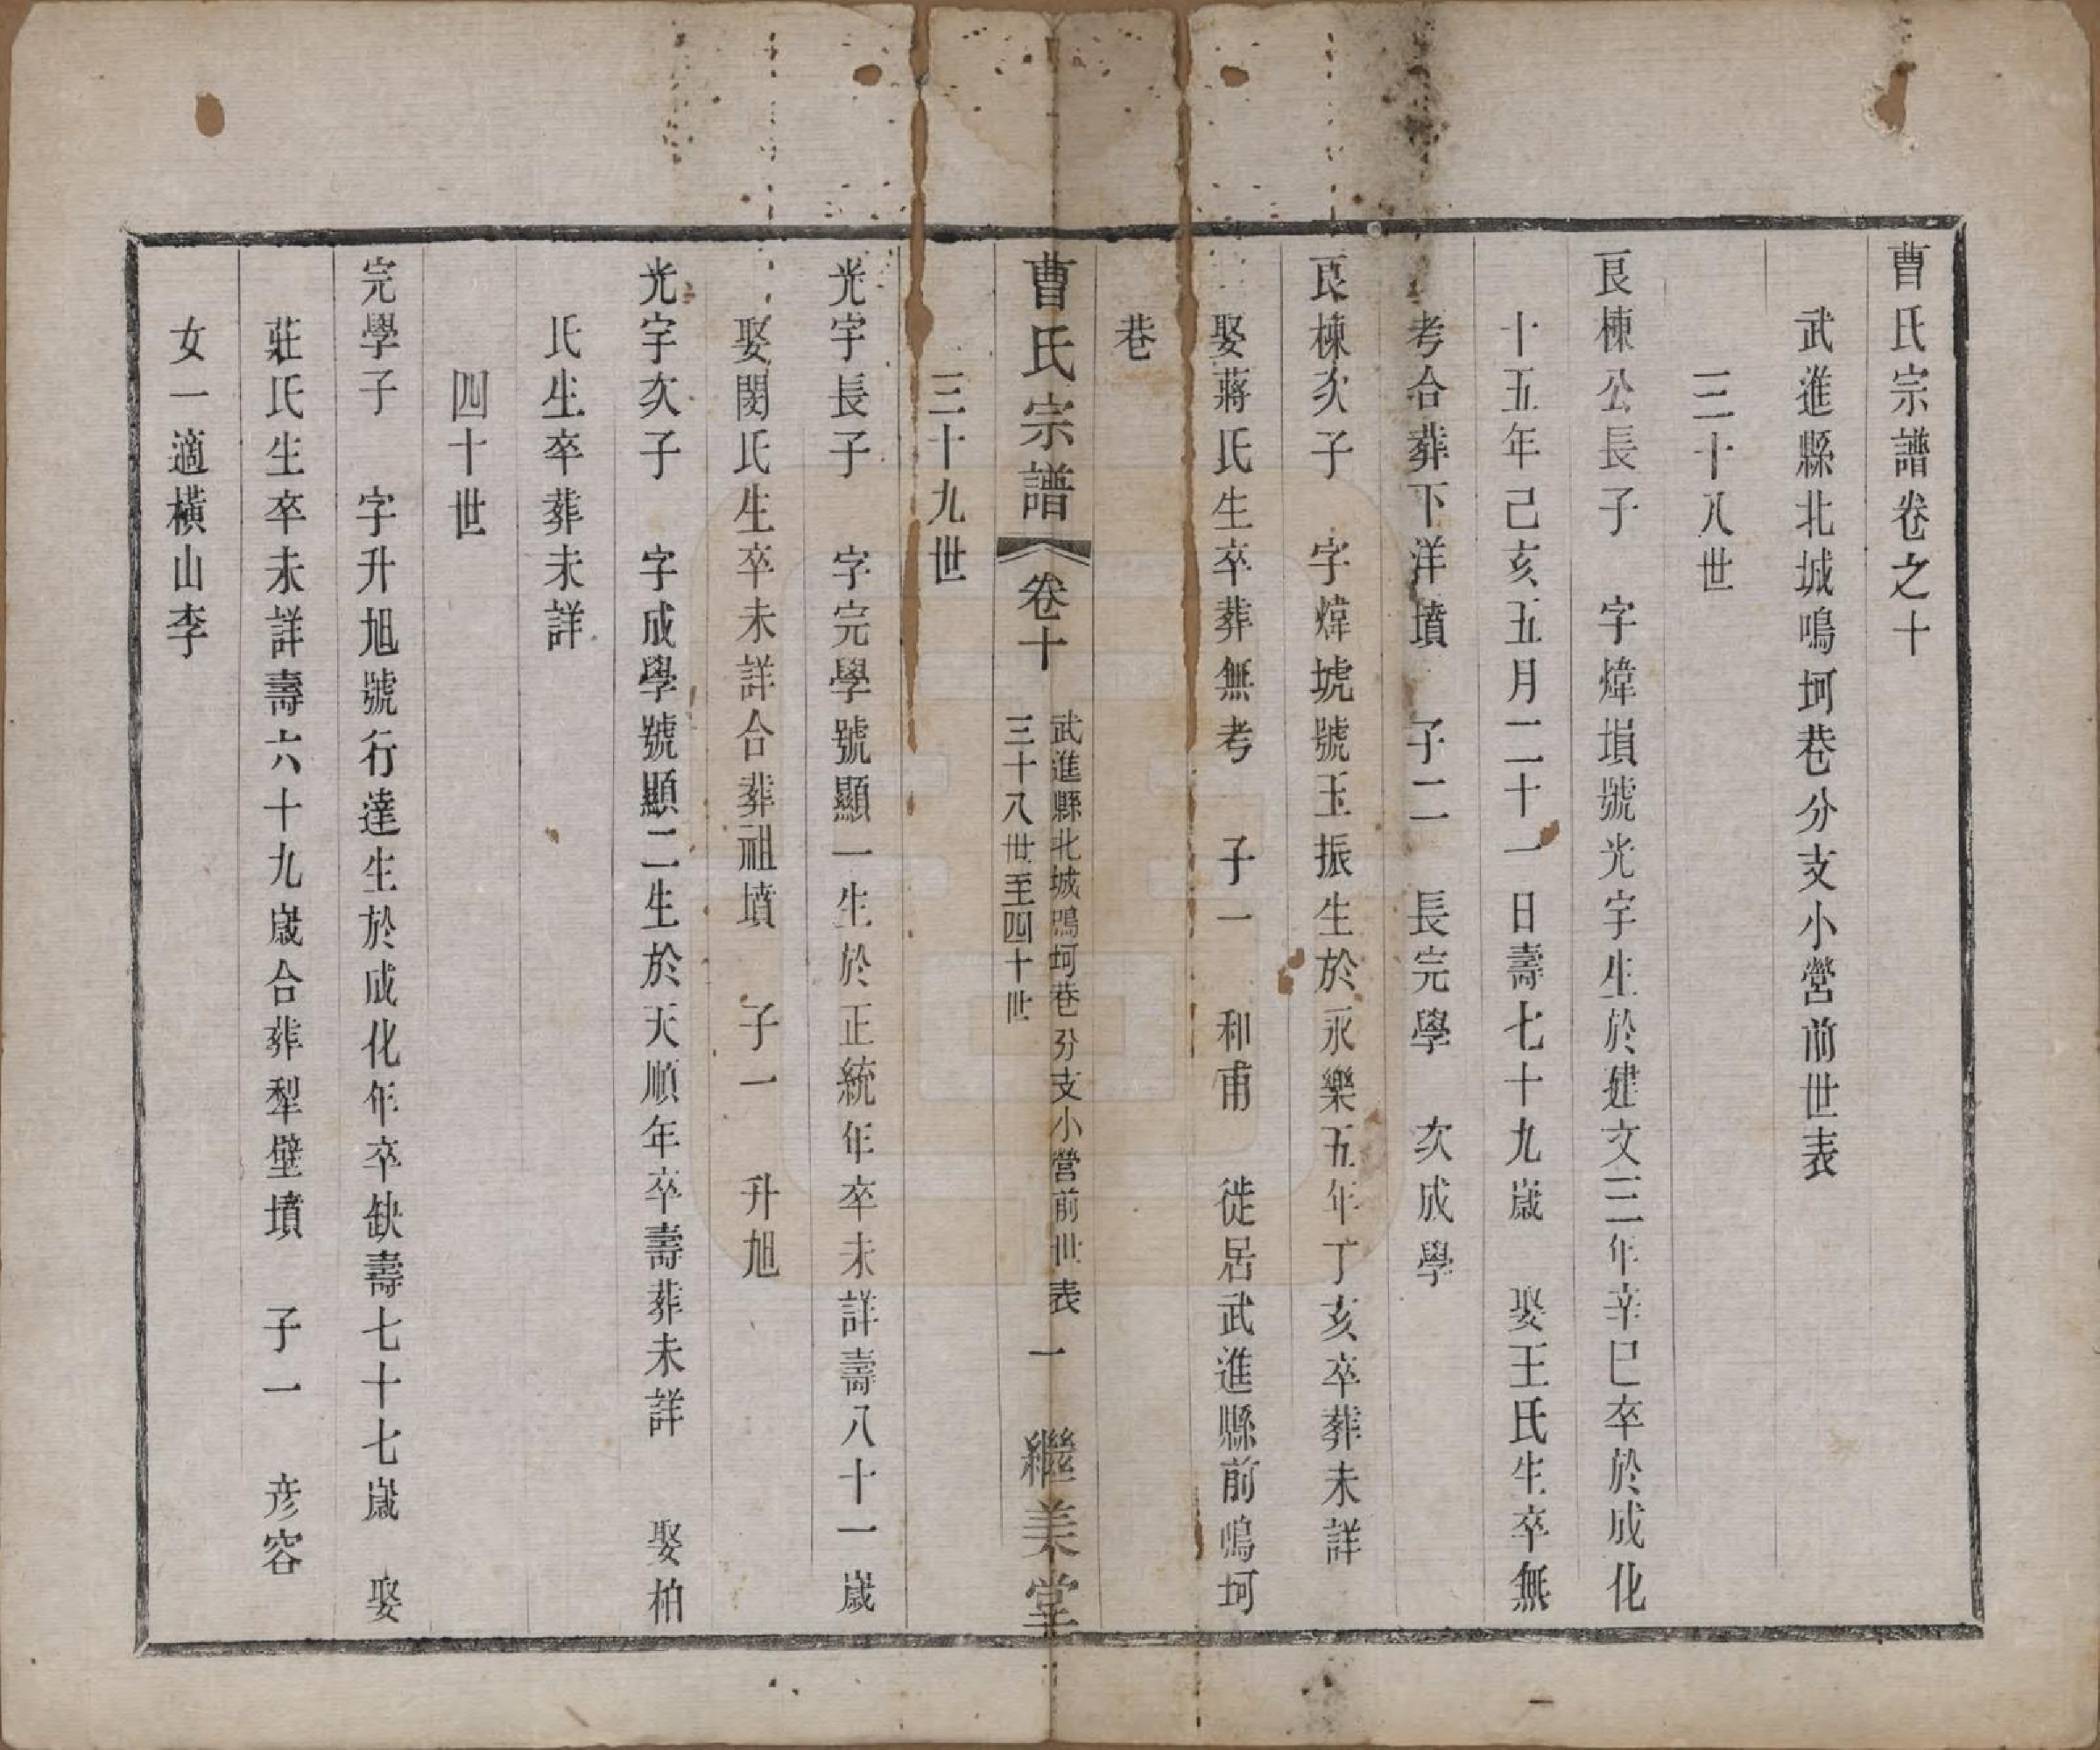 曹氏宗譜卷之十
武進縣北城鳴坷巷分支小營前世表
三十八世
艮棟公長子　字煒塤號光宇生於建文三年辛巳卒於成化
十五年己亥五月二十一日壽七十九歲　娶王氏生卒無
考合葬下洋墳　子二　長完學　次成學
艮棟次子　字煒𡌛號玉振生於永樂五年丁亥卒葬未詳
娶蔣氏生卒葬無考　子一　和甫　徙居武進縣前鳴坷
巷
曹氏宗譜　卷十　武進縣北城鳴坷巷分支小營前世表　三十八世至四十世　一　繼美堂
三十九世
光宇長子　字完學號顯一生於正統年卒未詳壽八十一歲
娶閔氏生卒未詳合葬祖墳　子一　升旭
光宇次子　字成學號顯二生於天順年卒壽葬未詳　娶柏
氏生卒葬未詳
四十世
完學子　字升旭號行達生於成化年卒缺壽七十七歲　娶
莊氏生卒未詳壽六十九歲合葬犁壁墳　子一　彦容
女一適橫山李